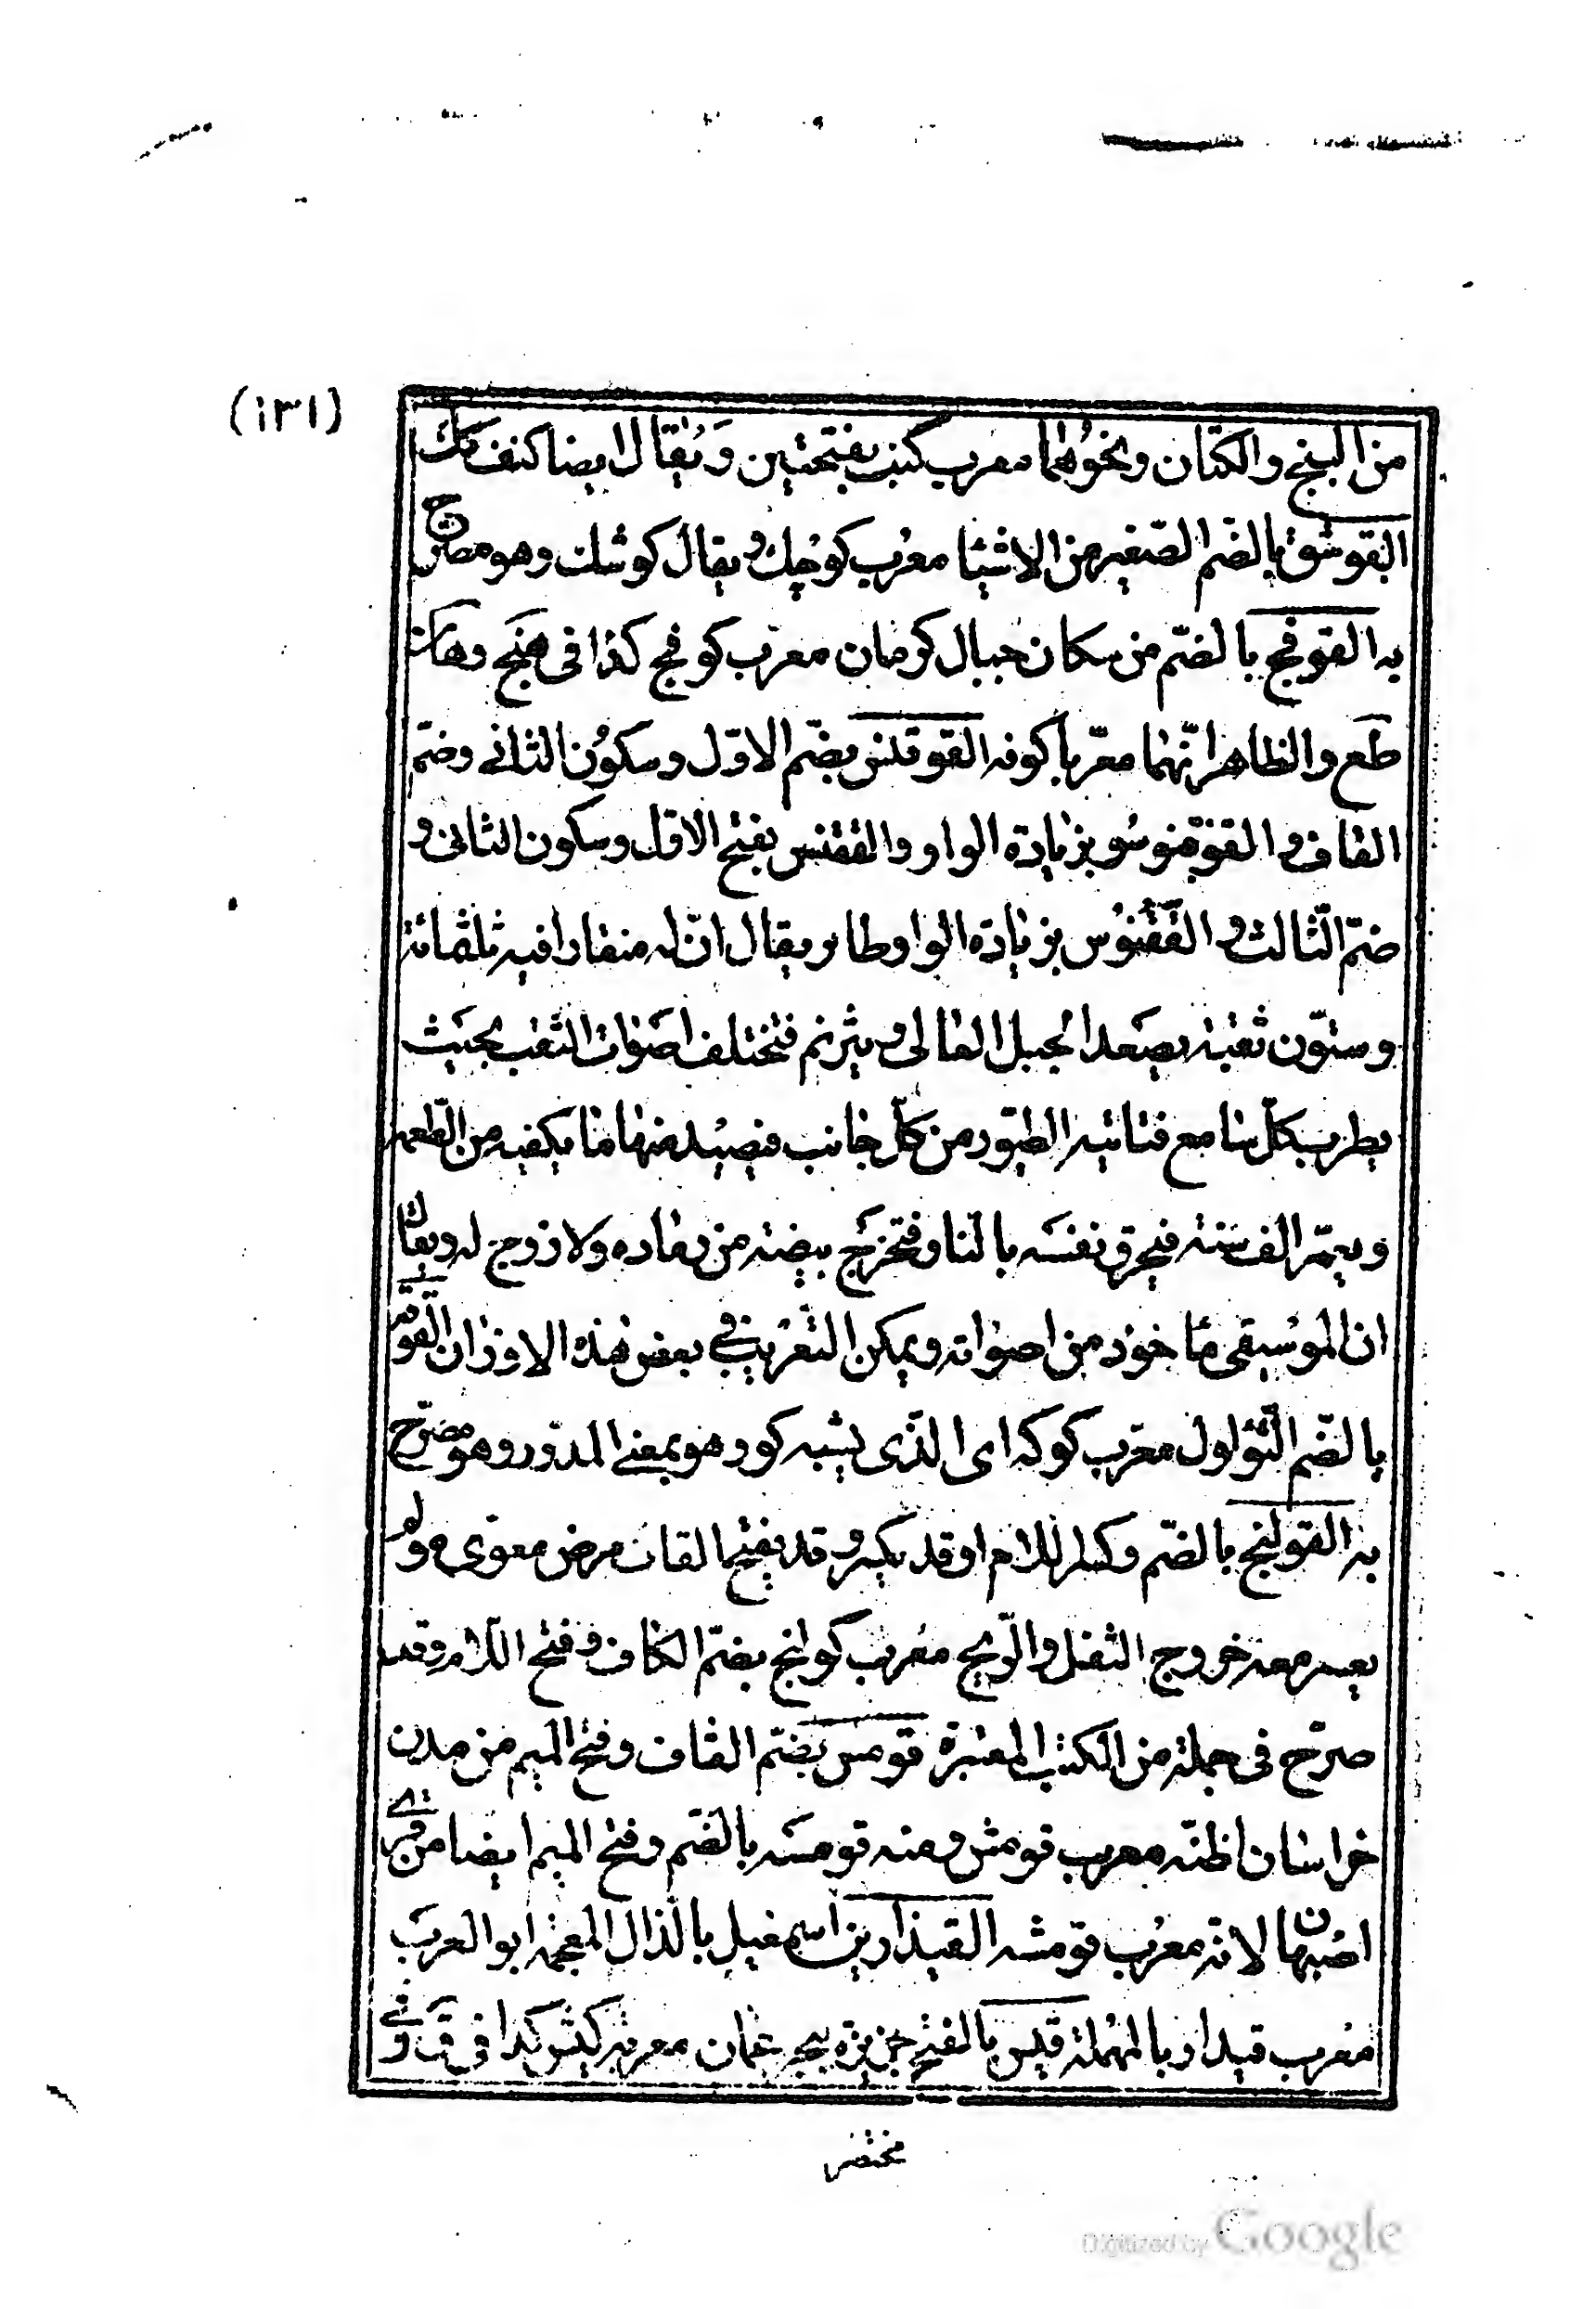 (١٣١)
من البنج والكتان ونحوهما معرب كنب بفتحتين ويقال ايضا كنف
القوشق بالضم الصغير من الاشيا معرب كوچك ويقال كوشك وهو مصرح
به القوفج بالضم من سكان جبال كرمان معرب كوفج كذا فى
طع والظاهر انهما معربا كوفه القوقنس بضم الاول وسكون الثانى وضم
القاف و القوقنوس بزيادة الواو والققنس بفتح الاول وسكون الثانى و
ضم الثالث و الققنوس بزيادة الواو طاير يقال ان له منقارا فيه ثلثمائة
وستون ثقبة يصعد الجبل العالى و يترنم فتختلف اصوات الثقب بحيث
يطرب كل سامع فتاتيه الطيور من كل جانب فيصيد منها ما يكفيه من الطعمه
و يعمر الف سنة فيحرق نفسه بالنار فتخرج بيضة من رماده ولا زوج له ويقال
ان الموسيقى ماخوذ من اصواته ويمكن التعريب فى بعض هذه الاوزان القوقه
بالضم الثؤلول معرب كوكه اى الذى يشبه كو وهو بمعنى المدور وهو مصرح
به القولنج بالضم وكسر اللام او قد يكسر و قد يفتح القاف مرض معوى مولم
يعسر معه خروج الثفل والريح معرب كولنج بضم الكاف وفتح اللام وقد
صرح فى جملة من الكتب المعتبرة قومس بضم القاف وفتح الميم من مدن
خراسان اظنه معرب قومش ومنه قومسه بالضم وفتح الميم ايضا من قرى
اصبهان لانه معرب قومشه القيذار بن اسمعيل بالذال المعجمة ابو العرب
معرب قيدار بالمهملة قيس بالفتح جزيرة ببحر عمان معربة كيش كذا فى ق و فى
مختصر
Digitized by Google